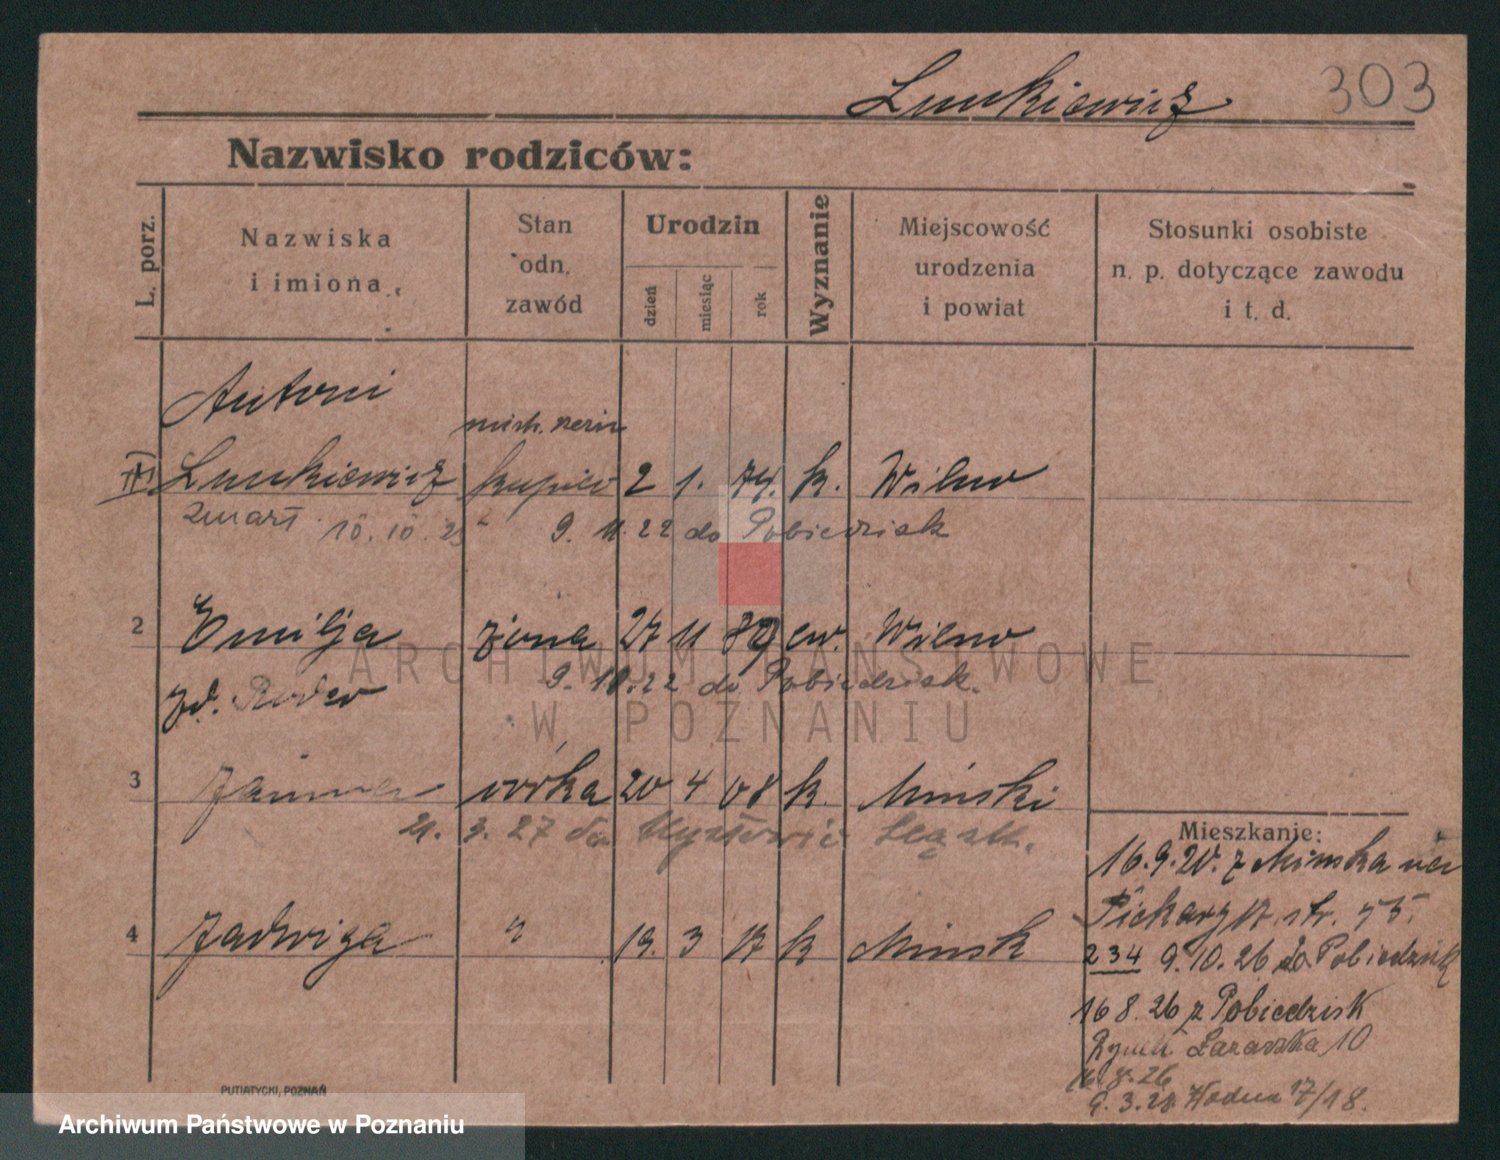 Lunkiewicz 303
Nazwisko rodziców:
L. porz.
Nazwiska
i imiona
Stan
odn.
zawód
Urodzin
dzień
miesiąc
rok
Wyznanie
Miejscowość
urodzenia
i powiat
Stosunki osobiste
n. p. dotyczące zawodu
i t. d.
Antoni
Lunkiewicz kupiec 2 1. 74. k. Wilno
zmarł 10.10.25
9. 11. 22 do Pobiedzisk
2 Emilja żona 27 11 79 ew. Wilno
9. 10. 22 do Pobiedzisk.
3 Janina córka 20 4 08 k. Minski
21. 3. 27 do Mysłowic
4 Jadwiga " 19. 3 17 k Minsk
Mieszkanie:
16.9.20. z Minska na
Piekary str.
234 9.10.26 do Pobiedzisk
16 8.26 z Pobiedzisk
Rynek Łazarska 10
16.8.26
9.3.28 Wodna 17/18.
PUTIATYCKI, POZNAŃ
ARCHIWUM PAŃSTWOWE
W POZNANIU
Archiwum Państwowe w Poznaniu